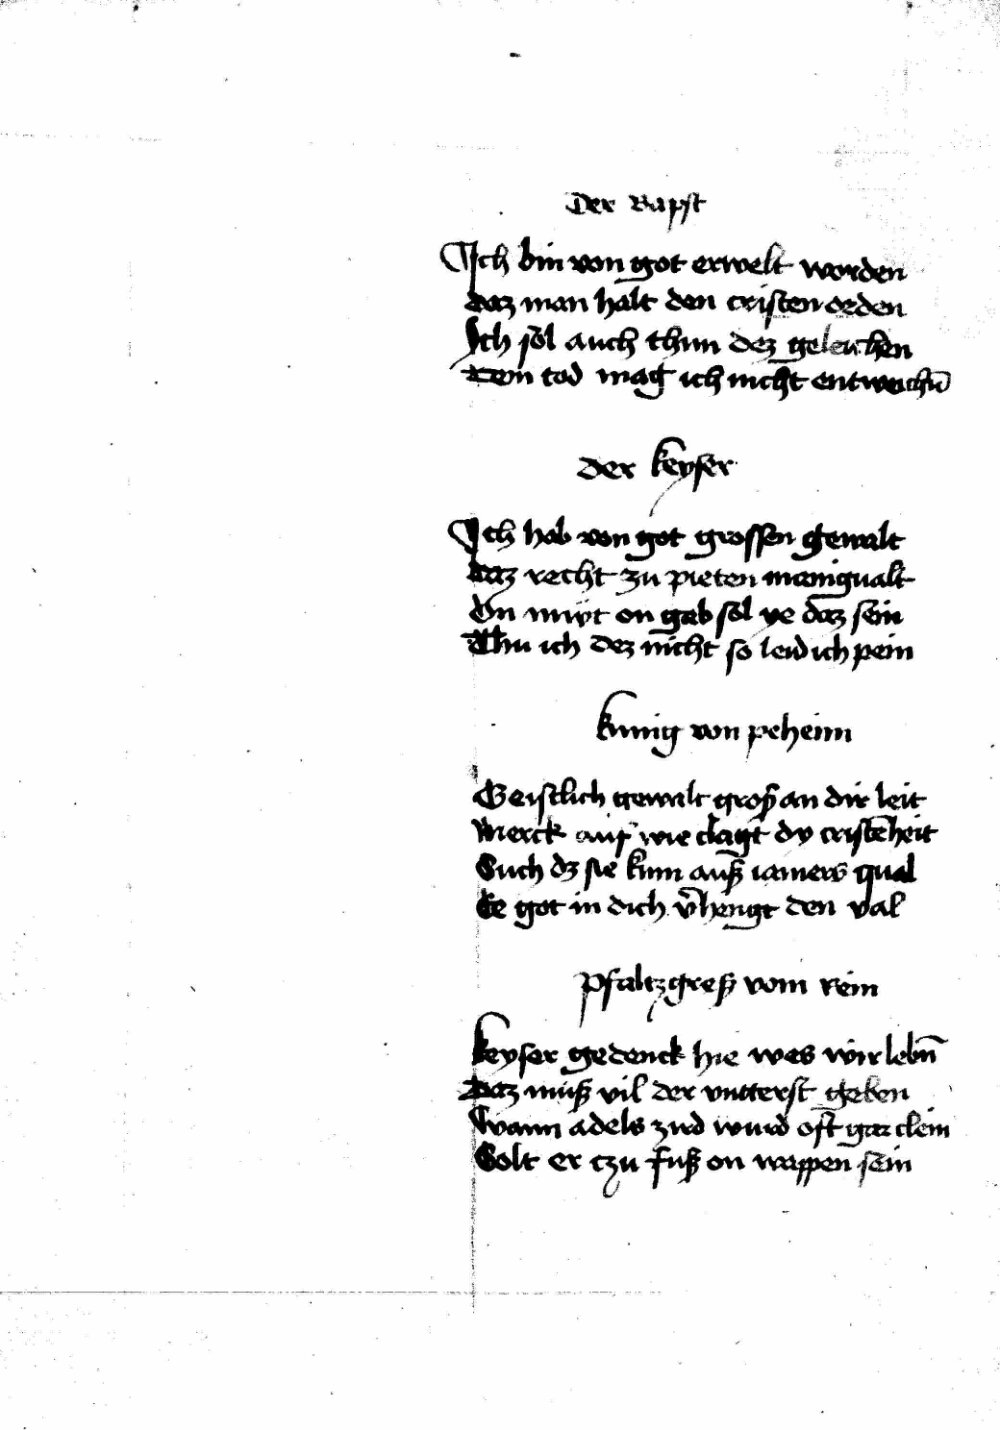 Der Bapst
Ich bin von got erwelt worden
Daz man halt den cristen orden
Ich sol auch thun dez geleichen
Dem tod mag ich nicht entweichn̄
der keyser
Ich hob von got grossen gewalt
Daz recht zu pieten manigualt
On miet on gab sol ye daz sein
Thu ich dez nicht so leid ich pein
kunig von peheim
Geistlich gewalt groß an dir leit
Merck auf wie clagt dy cristēheit
Such dz sie kum auß iamers qual
Ee got in dich v̄hengt den val
pfaltzgreff vom Rein
keyser gedenck hie wes wir lebn̄
Daz muß vil der vntterst geben
Wann adels zird wurd oft gar clein
Solt er czu fuß on wappen sein